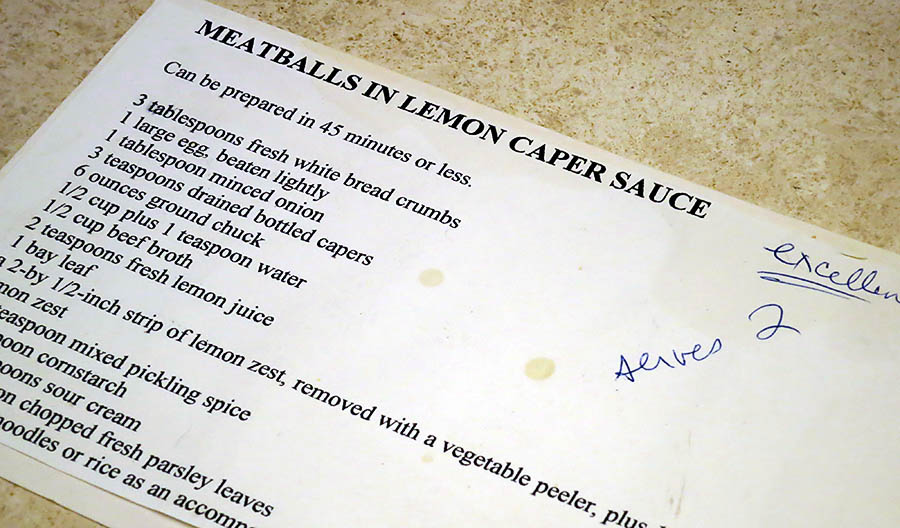 MEATBALLS IN LEMON CAPER SAUCE
Can be prepared in 45 minutes or less.
3 tablespoons fresh white bread crumbs
1 large egg, beaten lightly
1 tablespoon minced onion
3 teaspoons drained bottled capers
6 ounces ground chuck
1/2 cup plus 1 teaspoon water
1/2 cup beef broth
2 teaspoons fresh lemon juice
1 bay leaf
a 2-by 1/2-inch strip of lemon zest, removed with a vegetable peeler, plus
zest
mixed pickling spice
cornstarch
sour cream
chopped fresh parsley leaves
noodles or rice as an
excellen
serves 2